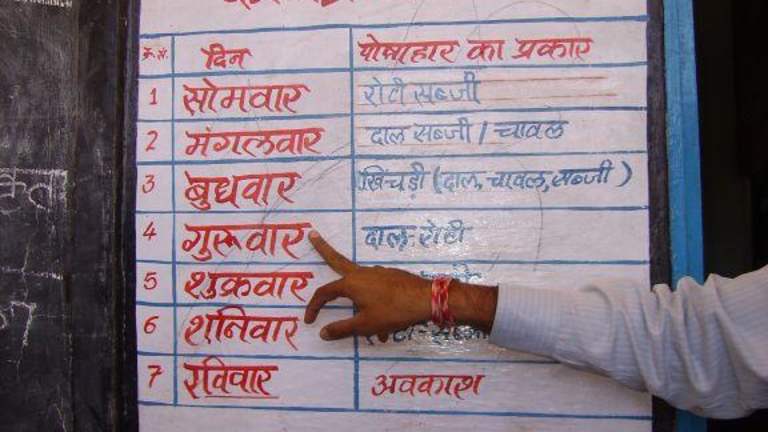 क्र.सं. दिन पोषाहार का प्रकार
1 सोमवार रोटी सब्जी
2 मंगलवार दाल सब्जी / चावल
3 बुधवार खिचड़ी (दाल, चावल, सब्जी)
4 गुरूवार दाल-रोटी
5 शुक्रवार
6 शनिवार
7 रविवार अवकाश